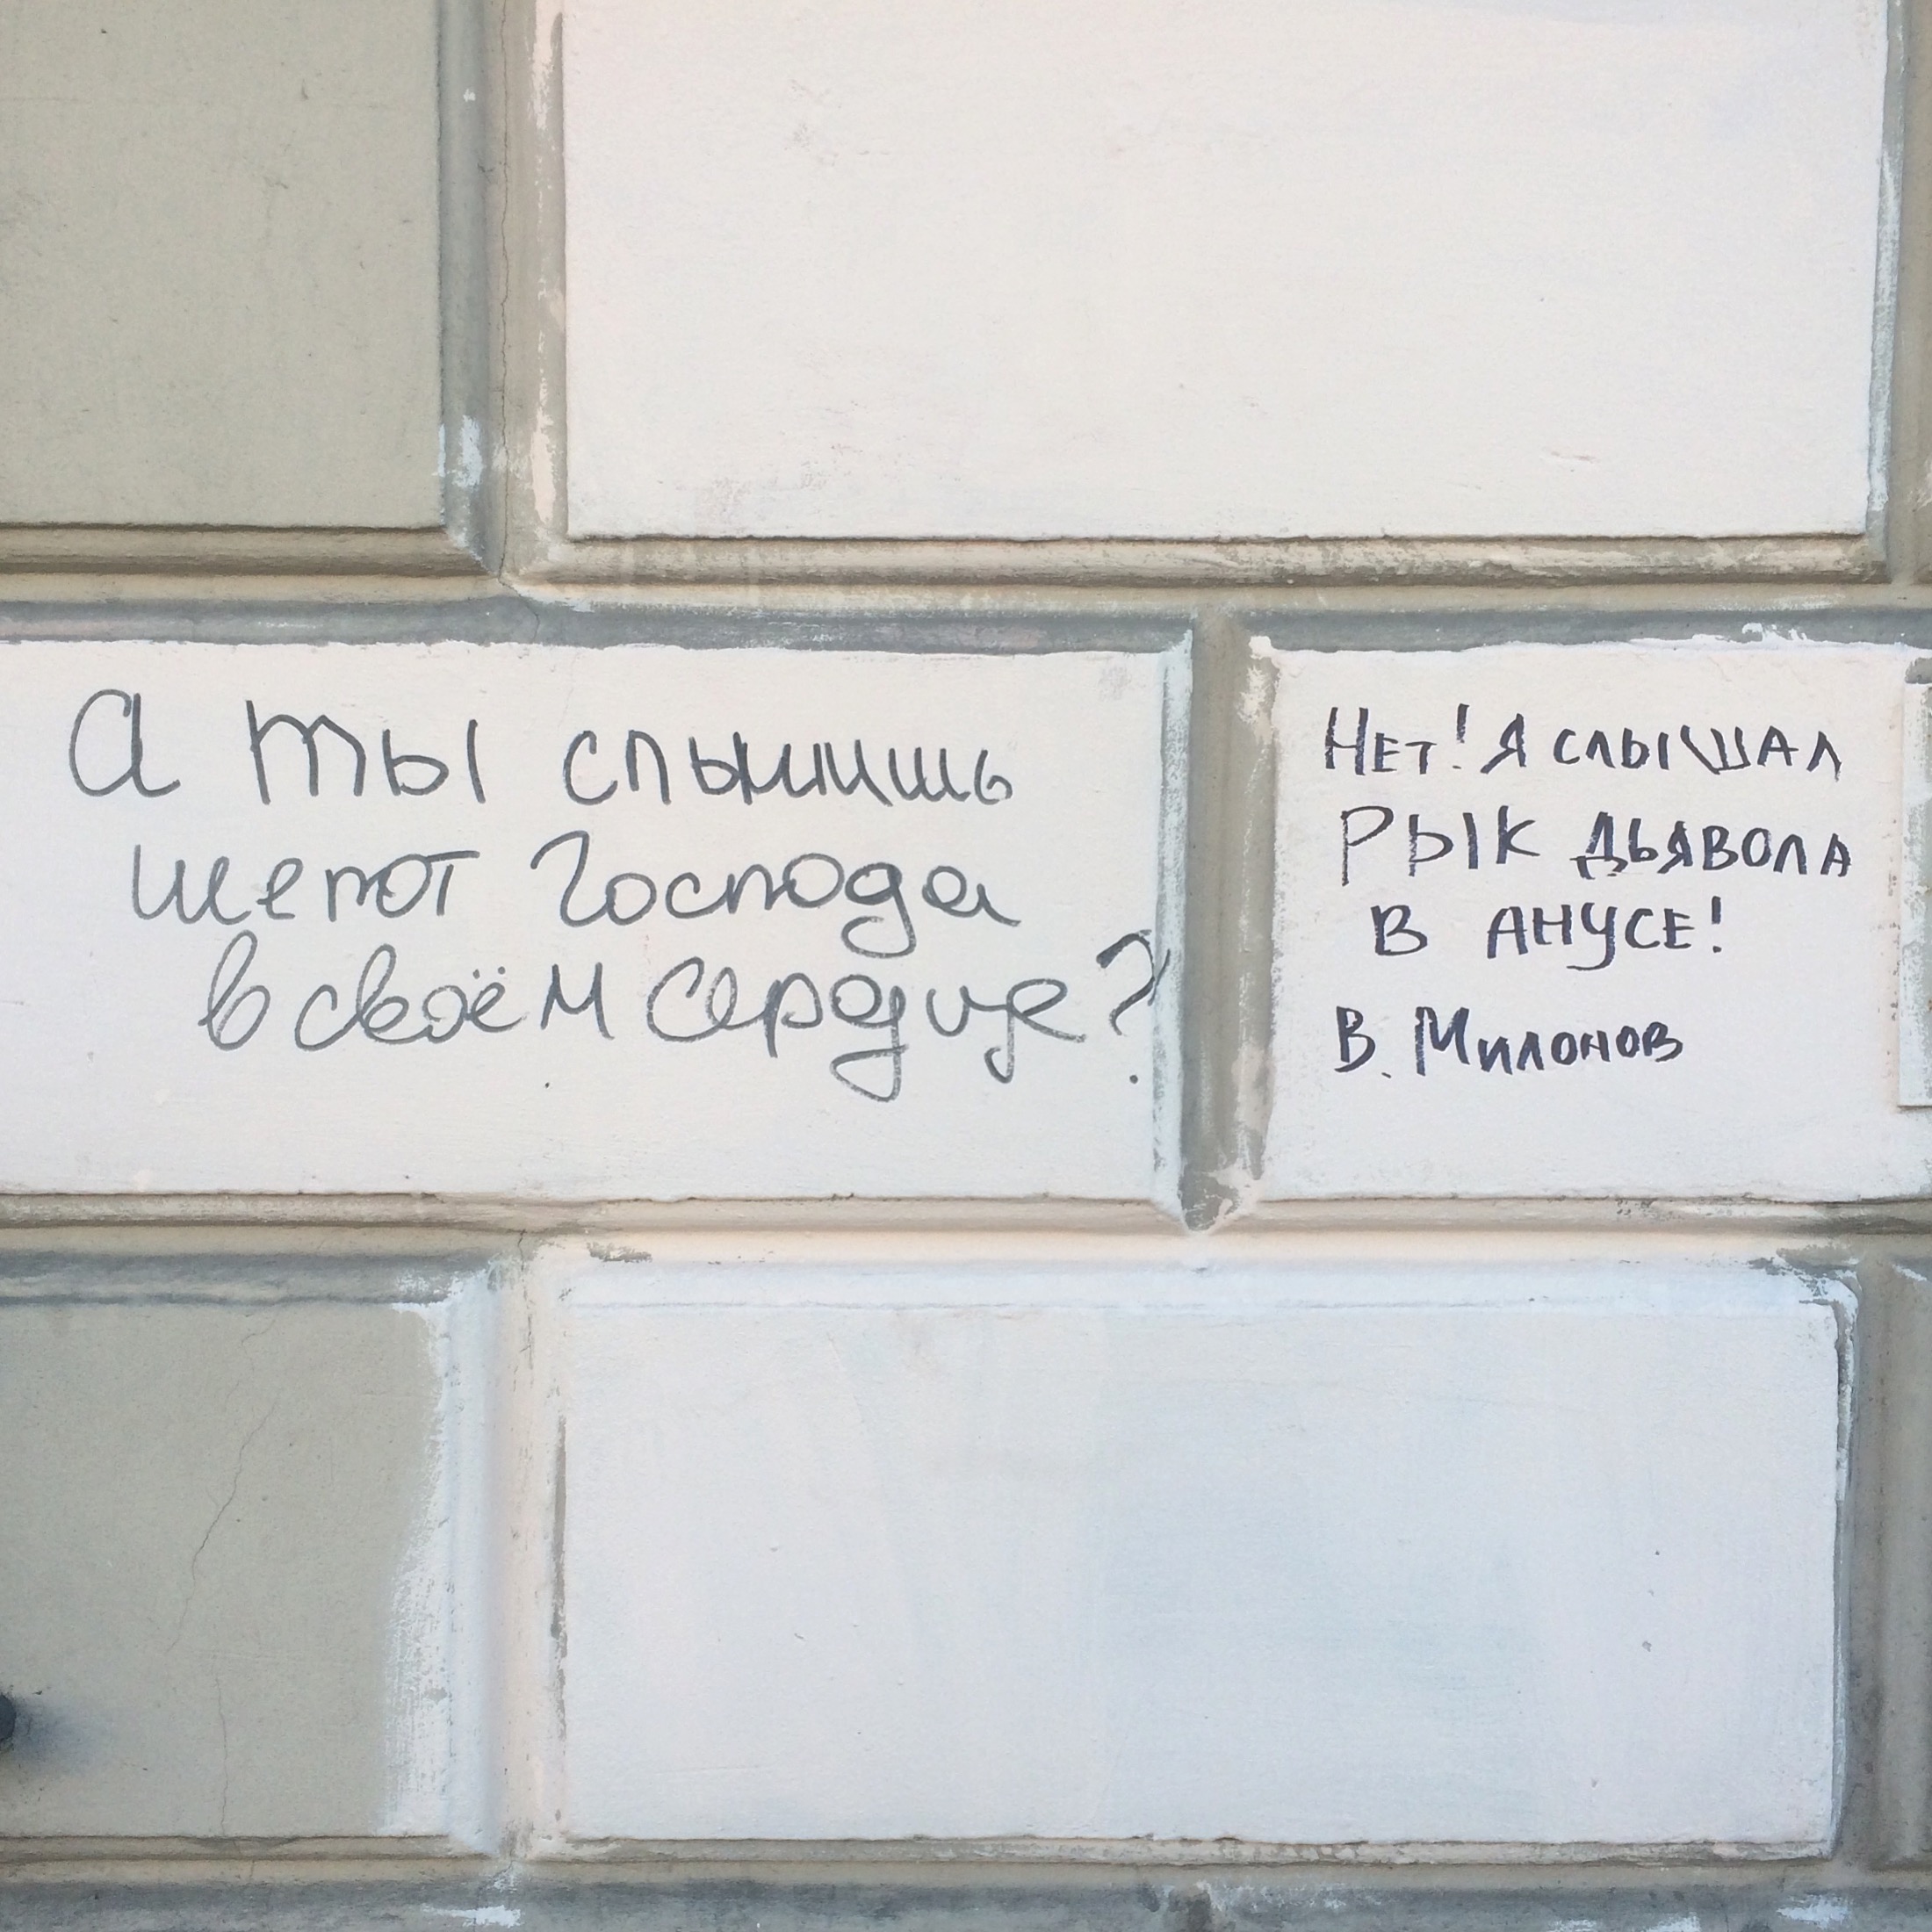 А ты слышишь
шепот Господа
в своём сердце?
Нет! Я слышал
рык дьявола
в анусе!
В. Милонов